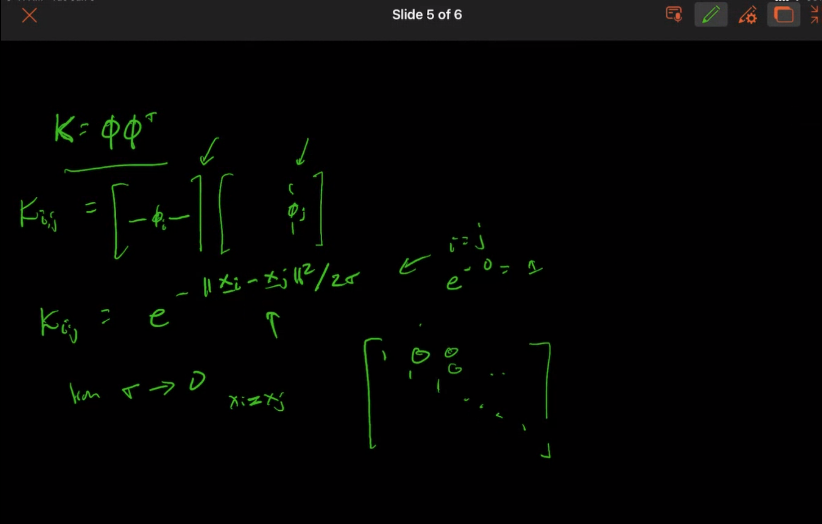 Slide 5 of 6
K = ϕϕᵀ
Kᵢ,ⱼ = [ — ϕᵢ — ] [ ϕⱼ ]
i = j
e⁻⁰ = 1
Kᵢⱼ = e^{-||xᵢ - xⱼ||²/2σ}
σ → 0
xᵢ = xⱼ
1 0 0
1 0 ..
1